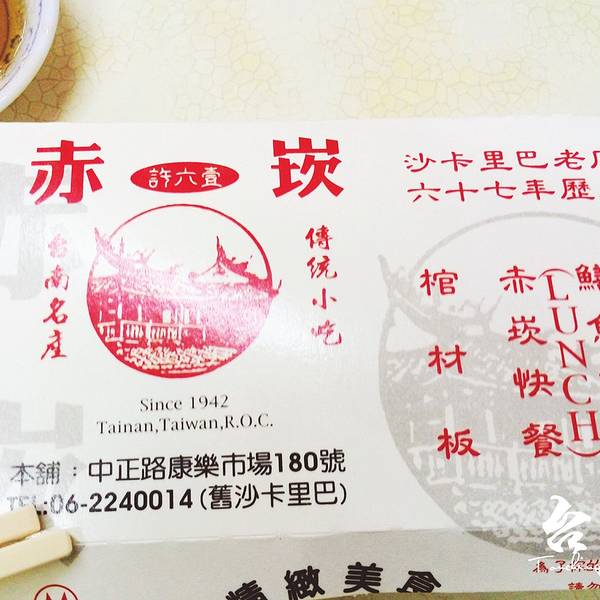 赤 許六壹 崁
台南名產
傳統小吃
Since 1942
Tainan,Taiwan,R.O.C.
本舖：中正路康樂市場180號
TEL:06-2240014(舊沙卡里巴)
沙卡里巴老店
六十七年歷
鱔魚
(LUNCH)
赤崁快餐
棺材板
精緻美食
台